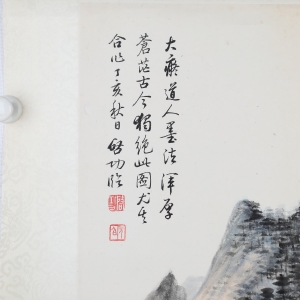 大癡道人墨法渾厚
蒼茫古今獨絕此圖尤其
合作丁亥秋日啓功臨